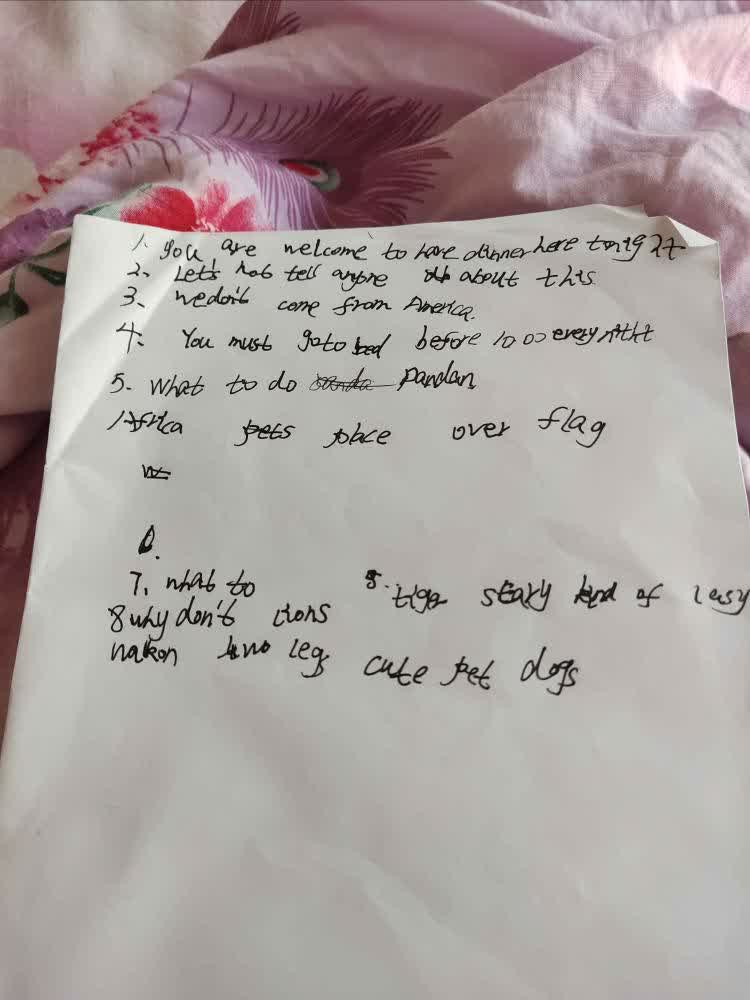 1. you are welcome to have dinner here tonig2t
2. Let's not tell anyone about this
3. we don't come from America.
4. You must go to bed before 10 00 every night
5. What to do Pandan
Africa pets place over flag
W
6.
7. what to
8 why don't lions
8. tiger scary kind of lasy
walk on two legs
cute pet dogs